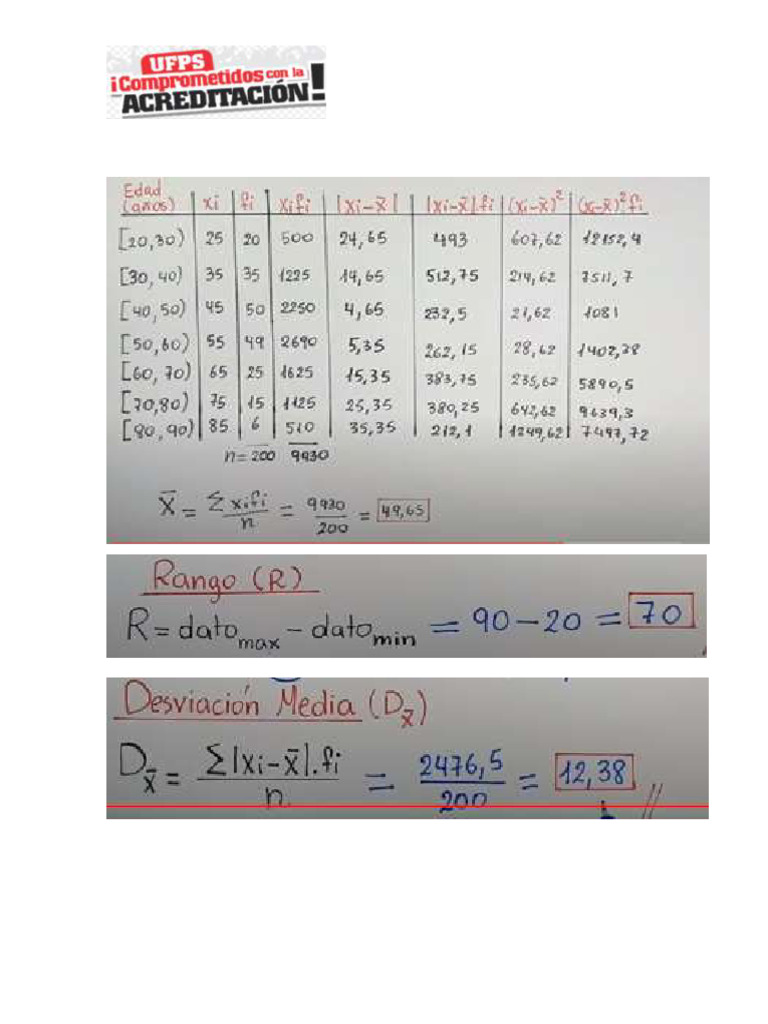 UFPS
¡Comprometidos con la
ACREDITACIÓN!
Edad (años) | xi | fi | xifi | |xi-x̄| | |xi-x̄|.fi | (xi-x̄)² | (xi-x̄)²fi
[20,30) 25 20 500 24,65 493 607,62 12152,4
[30,40) 35 35 1225 14,65 512,75 214,62 7511,7
[40,50) 45 50 2250 4,65 232,5 21,62 1081
[50,60) 55 49 2690 5,35 262,15 28,62 1402,38
[60,70) 65 25 1625 15,35 383,75 235,62 5890,5
[70,80) 75 15 1125 25,35 380,25 642,62 9639,3
[80,90) 85 6 510 35,35 212,1 1249,62 7497,72
n=200 9930
x̄ = Σxifi/n = 9930/200 = 49,65
Rango (R)
R = dato max - dato min = 90-20 = 70
Desviación Media (Dx̄)
Dx̄ = Σ|xi-x̄|.fi/n = 2476,5/200 = 12,38